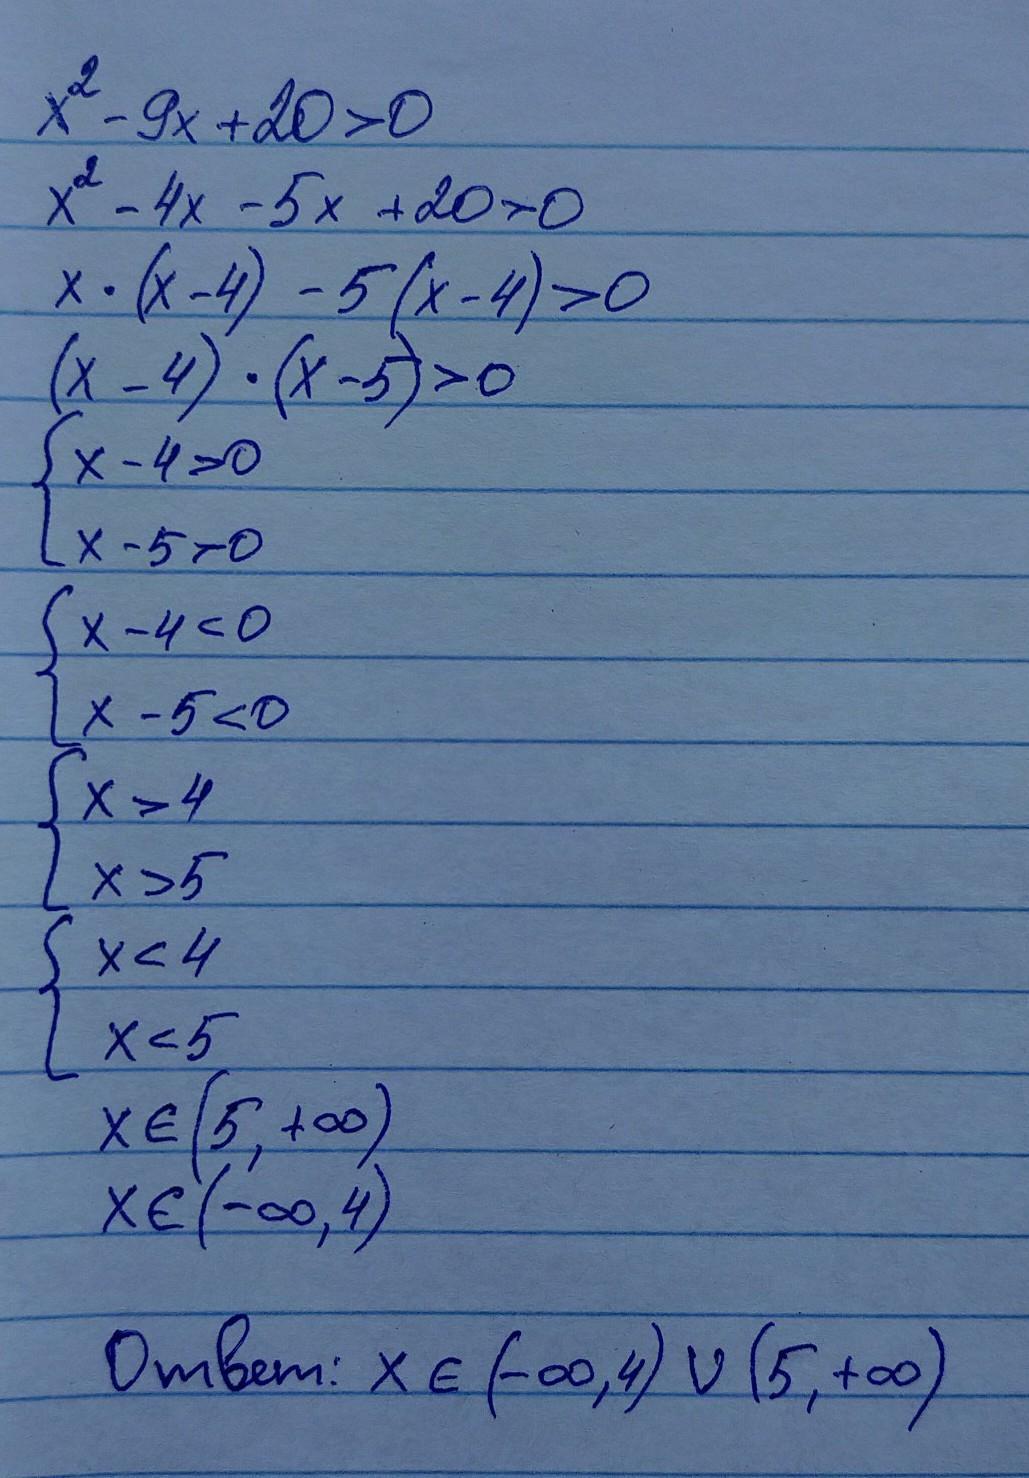 x² - 9x + 20 > 0
x² - 4x - 5x + 20 > 0
x · (x - 4) - 5(x - 4) > 0
(x - 4) · (x - 5) > 0
{ x - 4 > 0
x - 5 > 0
{ x - 4 < 0
x - 5 < 0
{ x > 4
x > 5
{ x < 4
x < 5
x ∈ (5, +∞)
x ∈ (-∞, 4)
Ответ: x ∈ (-∞, 4) ∪ (5, +∞)